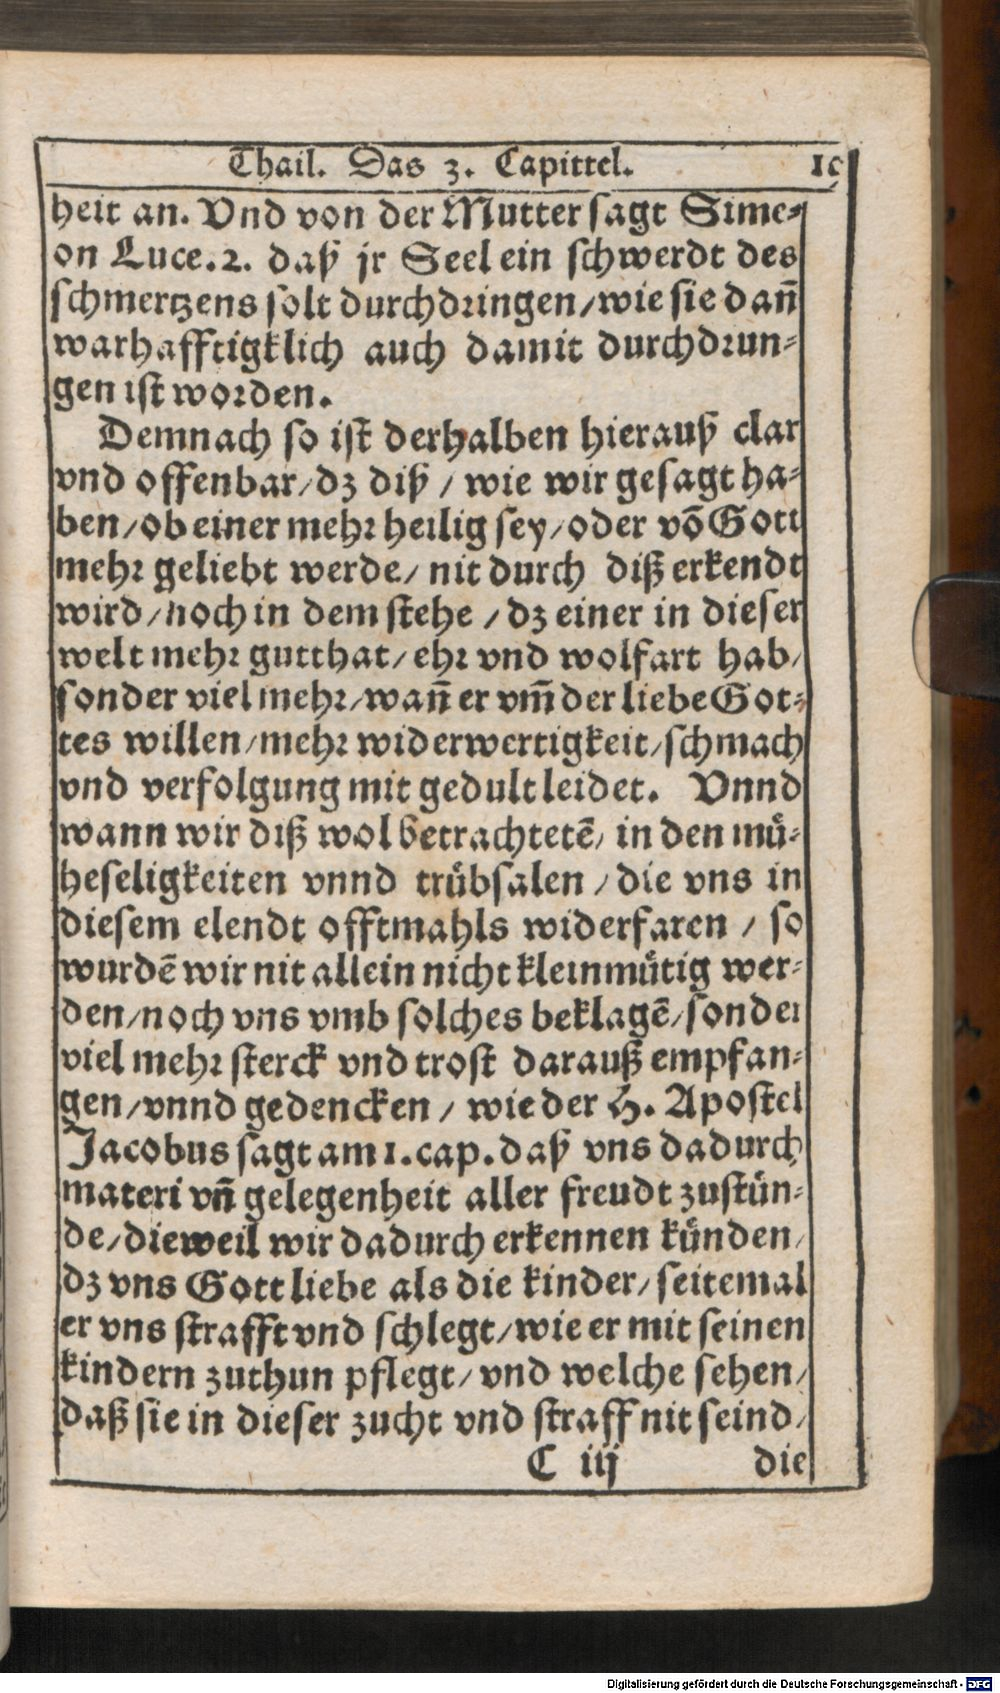 Thail. Das 3. Capittel.
heit an. Vnd von der Mutter sagt Sime-
on Luce. 2. daß jr Seel ein schwerdt des
schmertzens solt durchdringen/wie sie dañ
warhafftigklich auch damit durchdrun-
gen ist worden.
Demnach so ist derhalben hierauß clar
vnd offenbar/dz diß / wie wir gesagt ha-
ben/ob einer mehr heilig sey/oder võ Gott
mehr geliebt werde/ nit durch diß erkendt
wird/noch in dem stehe / dz einer in dieser
welt mehr gutthat/ehr vnd wolfart hab/
sonder viel mehr/wañ er vm̃ der liebe Got-
tes willen/mehr widerwertigkeit/schmach
vnd verfolgung mit gedult leidet. Vnnd
wann wir diß wol betrachtetẽ/ in den mü-
heseligkeiten vnnd trübsalen / die vns in
diesem elendt offtmahls widerfaren / so
wurdẽ wir nit allein nicht kleinmütig wer-
den/noch vns vmb solches beklagẽ/sonder
viel mehr sterck vnd trost darauß empfan-
gen/vnnd gedencken / wie der H. Apostel
Jacobus sagt am 1. cap. daß vns dadurch
materi vñ gelegenheit aller freudt zustün-
de/dieweil wir dadurch erkennen künden/
dz vns Gott liebe als die kinder/ seitemal
er vns strafft vnd schlegt/wie er mit seinen
kindern zuthun pflegt/ vnd welche sehen/
daß sie in dieser zucht vnd straff nit seind/
C iij die
Digitalisierung gefördert durch die Deutsche Forschungsgemeinschaft - DFG